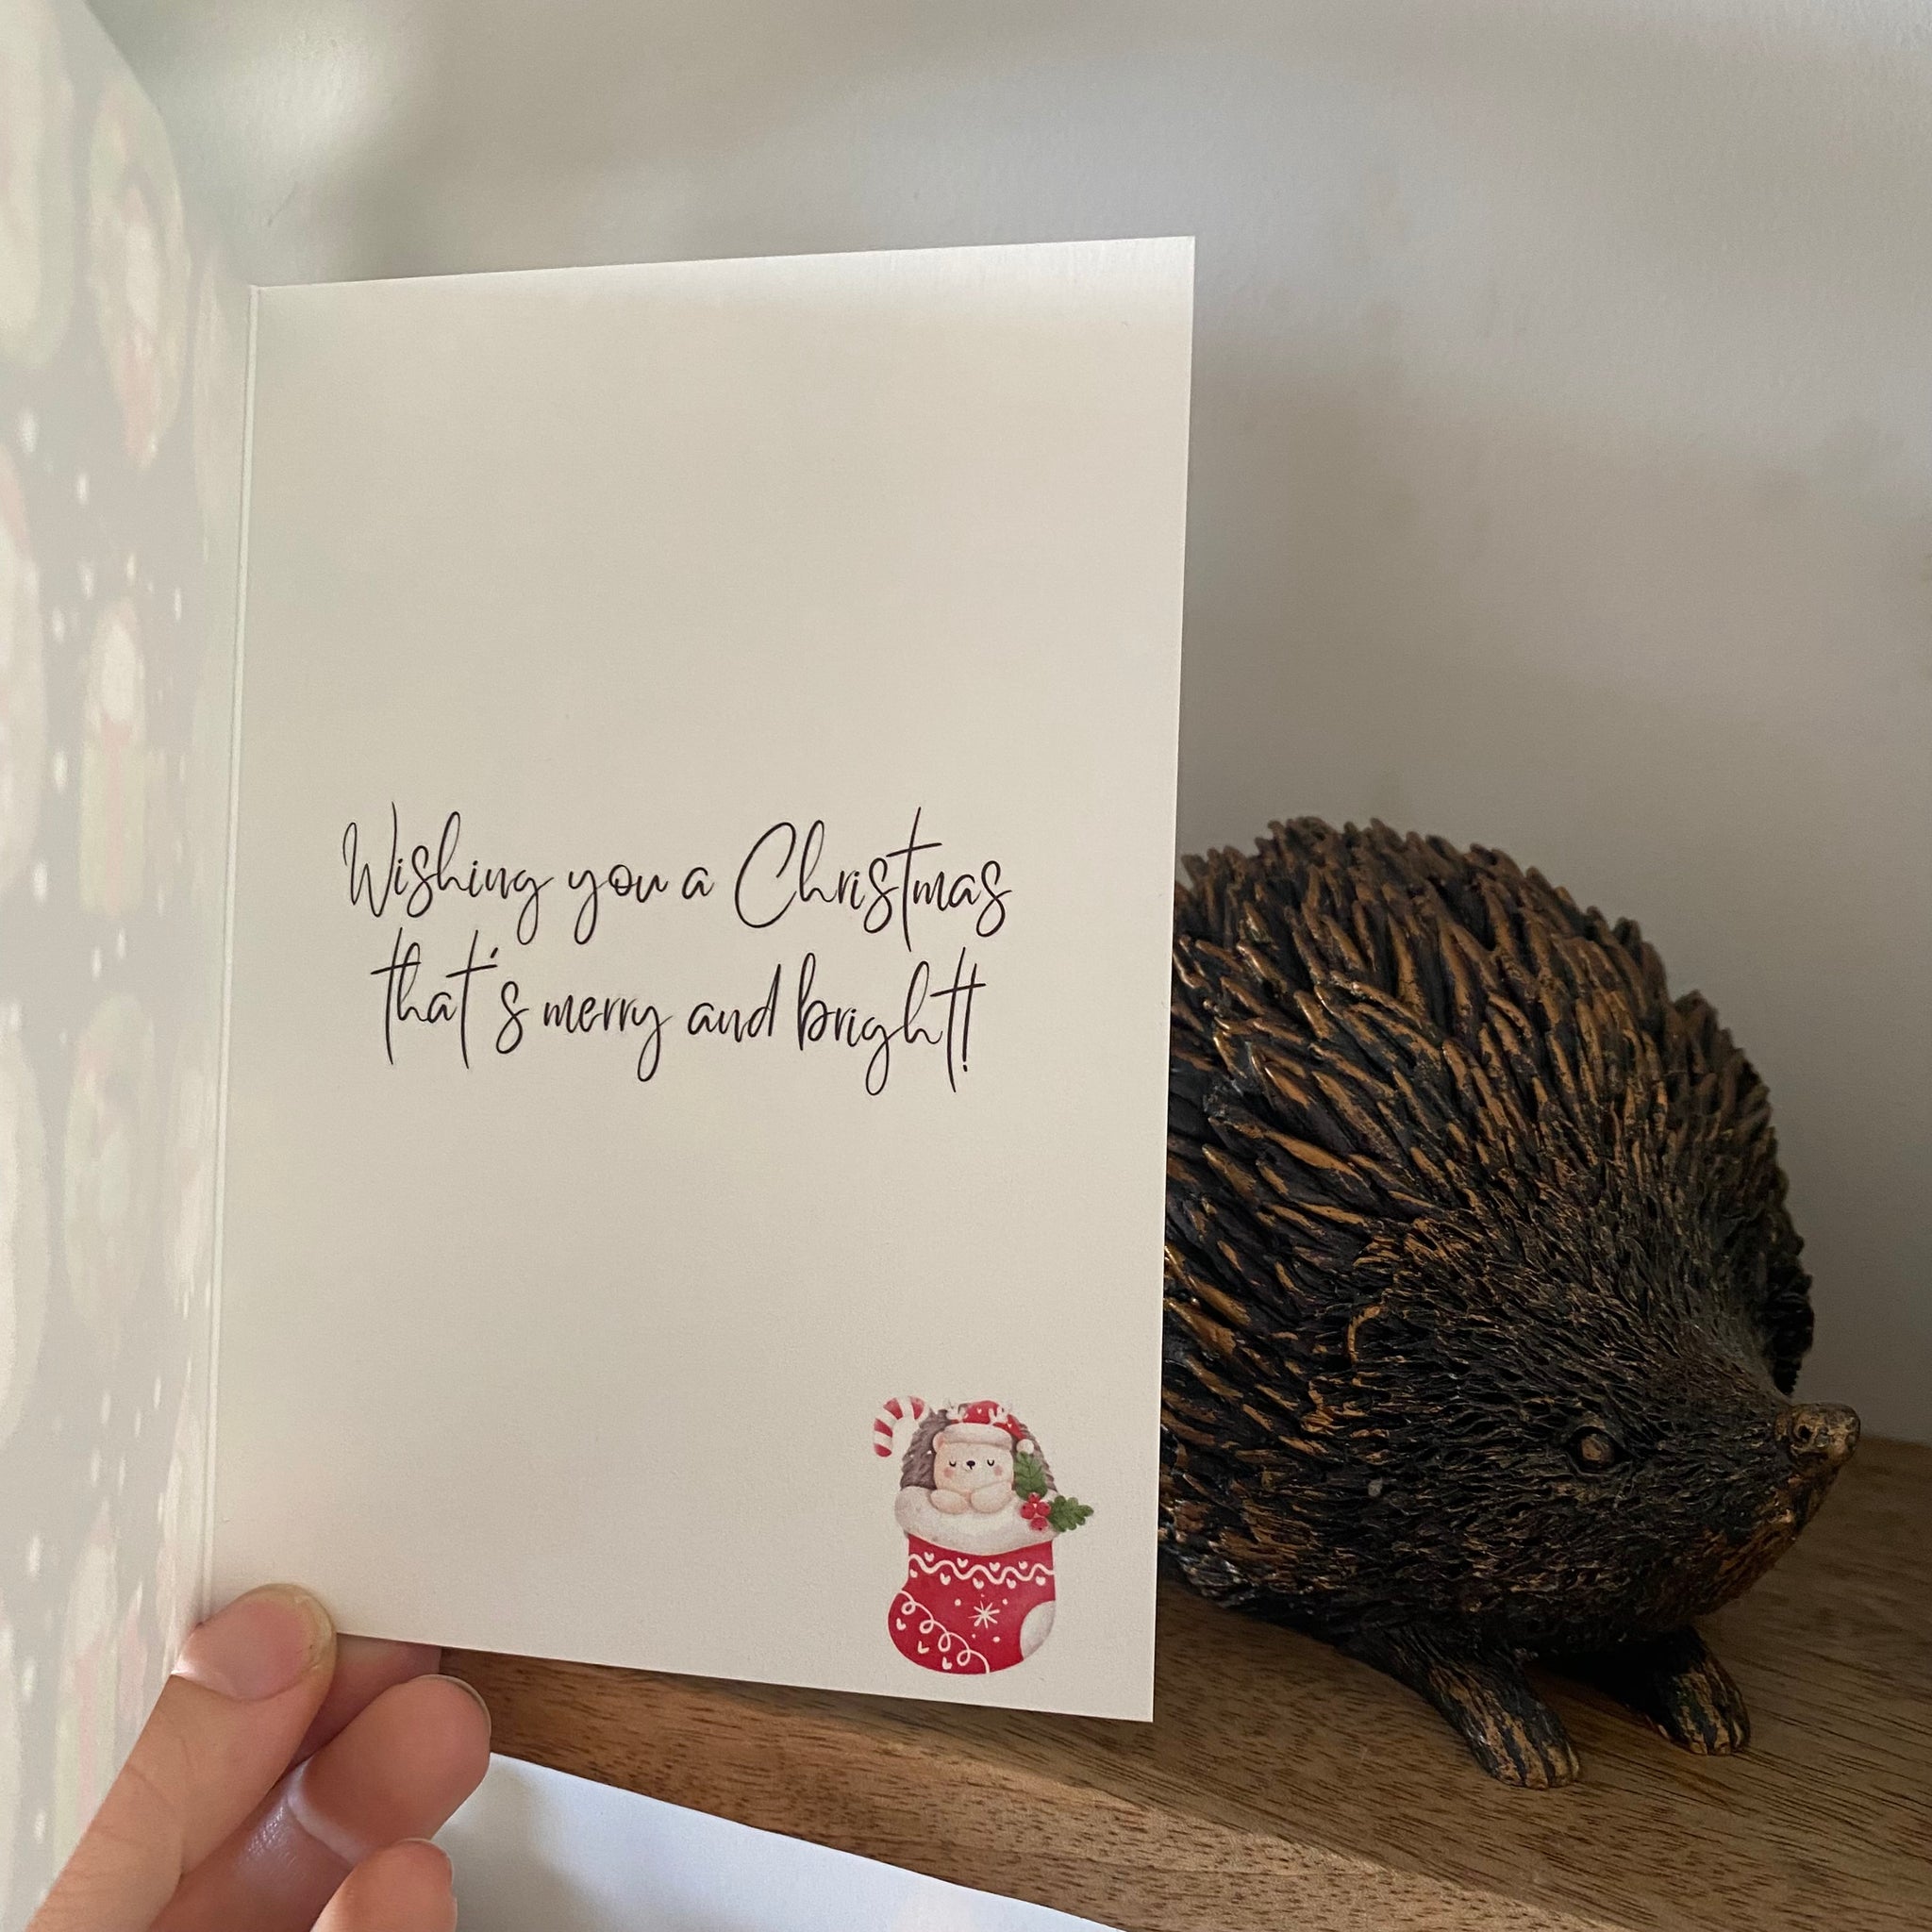 Wishing you a Christmas
that's merry and bright!